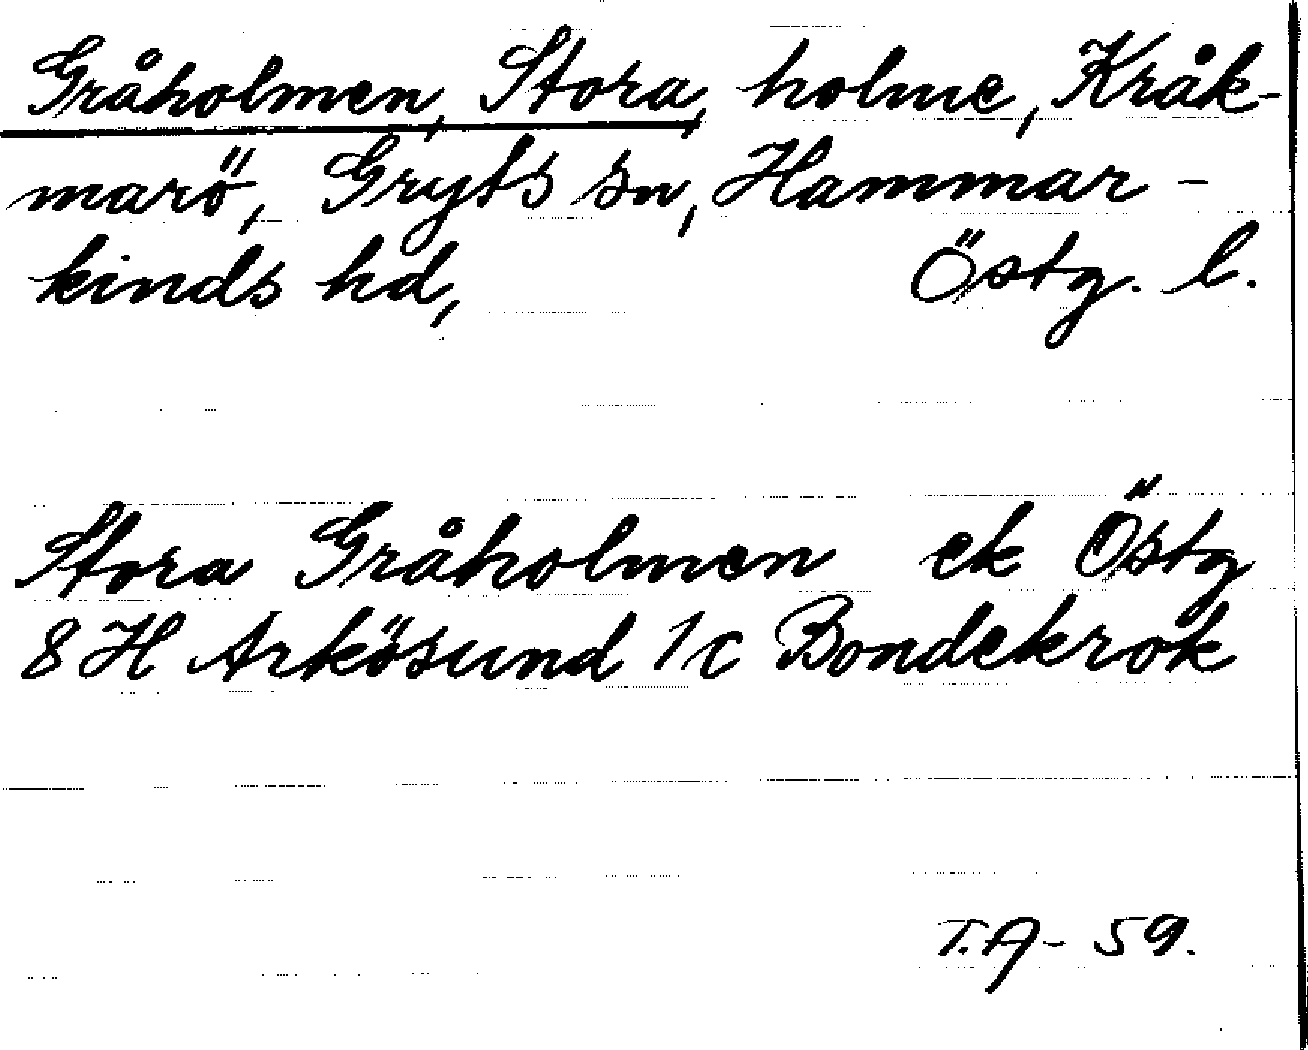 Gråholmen, Stora, holme, Kråk-
marö, Gryts sn, Hammar-
kinds hd, Östg. l.
Stora Gråholmen ek Östg
8 H Arkösund 1c Bondekrok
T.A- 59.